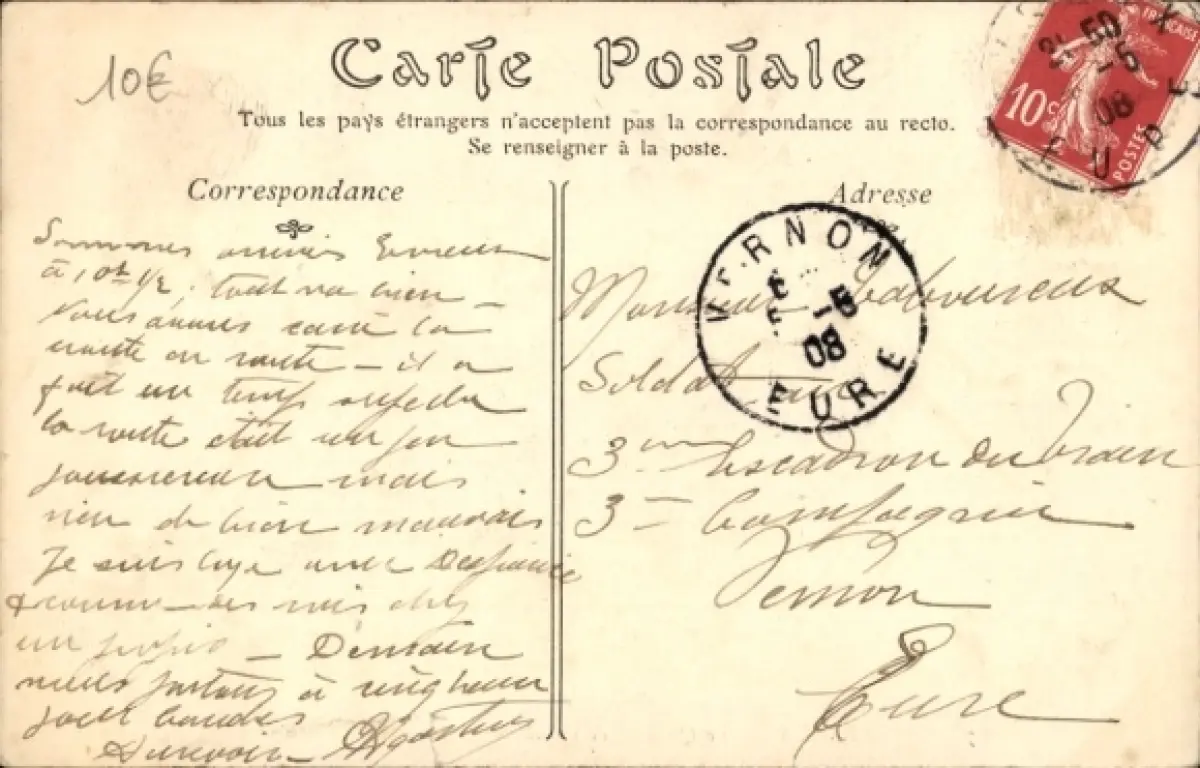 10€
Carte Postale
Tous les pays étrangers n'acceptent pas la correspondance au recto.
Se renseigner à la poste.
FRANÇAISE
50
-5
08
10c
POSTES
E U R E
Correspondance
Sommes arrivés Evreux
à 10h 1/2. tout va bien —
Nous avons cassé la
croute en route — il a
fait un temps superbe
la route était un peu
poussiereuse mais
rien de bien mauvais
Je suis logé avec
un — Demain
nous partons à cinq heures
pour
Aurevoir —
Adresse
VERNON
-5
08
EURE
Monsieur
Soldat au
3me Escadron du Train
3me Compagnie
Vernon
Eure